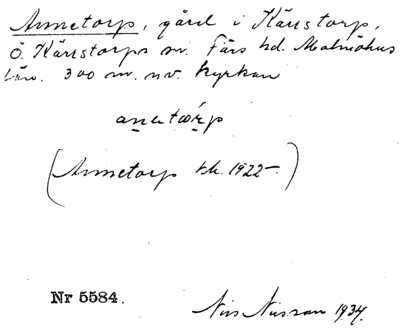 Annetorp, gård i Kärrstorp,
Ö. Kärrstorps sn. Färs hd. Malmöhus
län. 300 m. nv. kyrkan
(Annetorp tk. 1922-)
Nr 5584.
Nils Nilsson 1934.